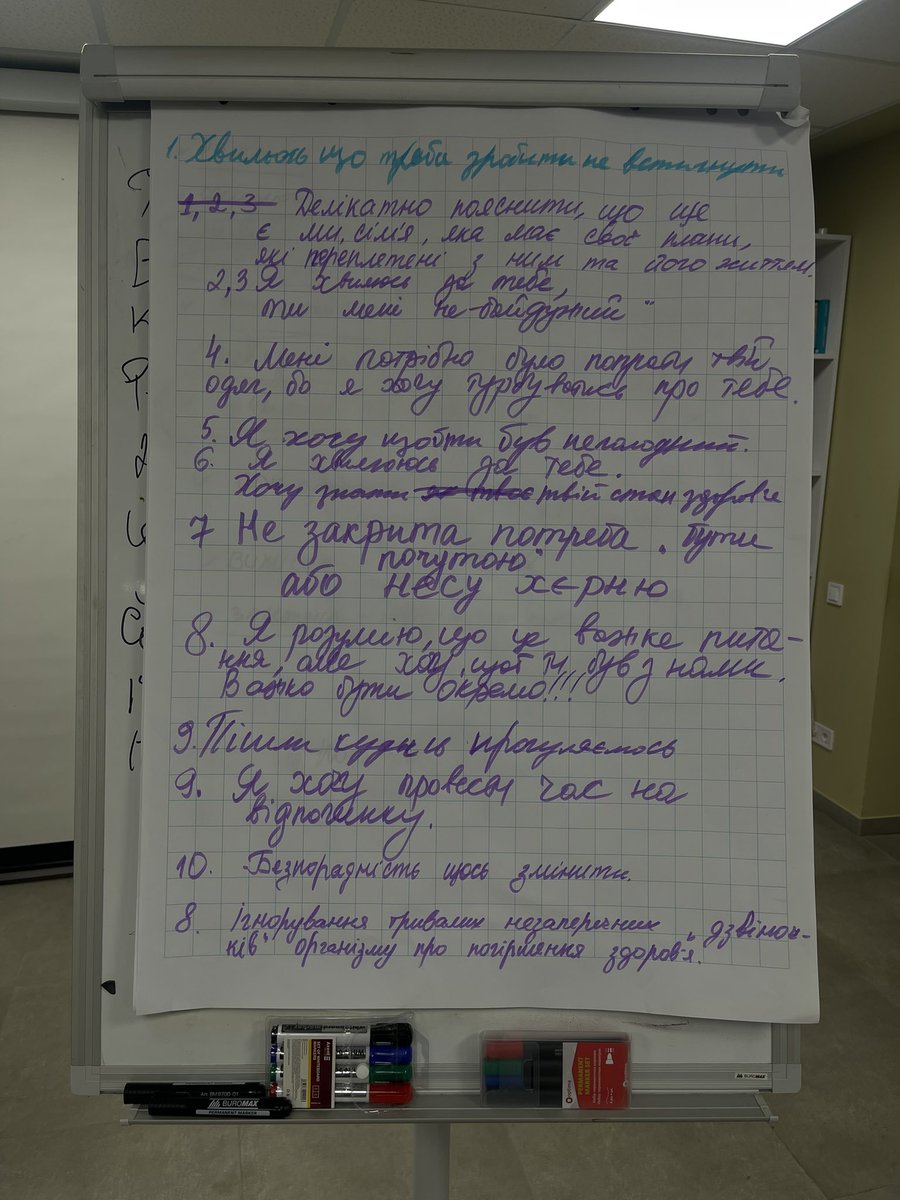 1. Хвилююсь що треба зробити не встигнути
1, 2, 3 Делікатно пояснити, що ще
є ми, сім'я, яка має свої плани,
які переплетені з ним та його життям.
2,3 Я хвилююсь за тебе,
ти мені не байдужий"
4. Мені потрібно було попрати твій
одяг, бо я хочу турбуватись про тебе.
5. Я хочу щоб ти був нагодований.
6. Я хвилююсь за тебе.
Хочу знати твій стан здоров'я
7 Не закрита потреба „бути
почутою"
або нєсу хєрню
8. Я розумію, що це важке пита-
ння, але хочу, щоб ти був з нами.
Важко бути окремо!!!
9. Пішли кудись прогуляємось
9. Я хочу провести час на
відпочинку.
10. Безпорадність щось змінити.
8. Ігнорування тривалих незаперечних „дзвіноч-
ків" організму про погіршення здоров'я.
BUROMAX
Art. BM.8700-01
BUROMAX
PERMANENT MARKER
SET OF WHITEBOARD
MARKERS
PERMANENT
MARKER SET